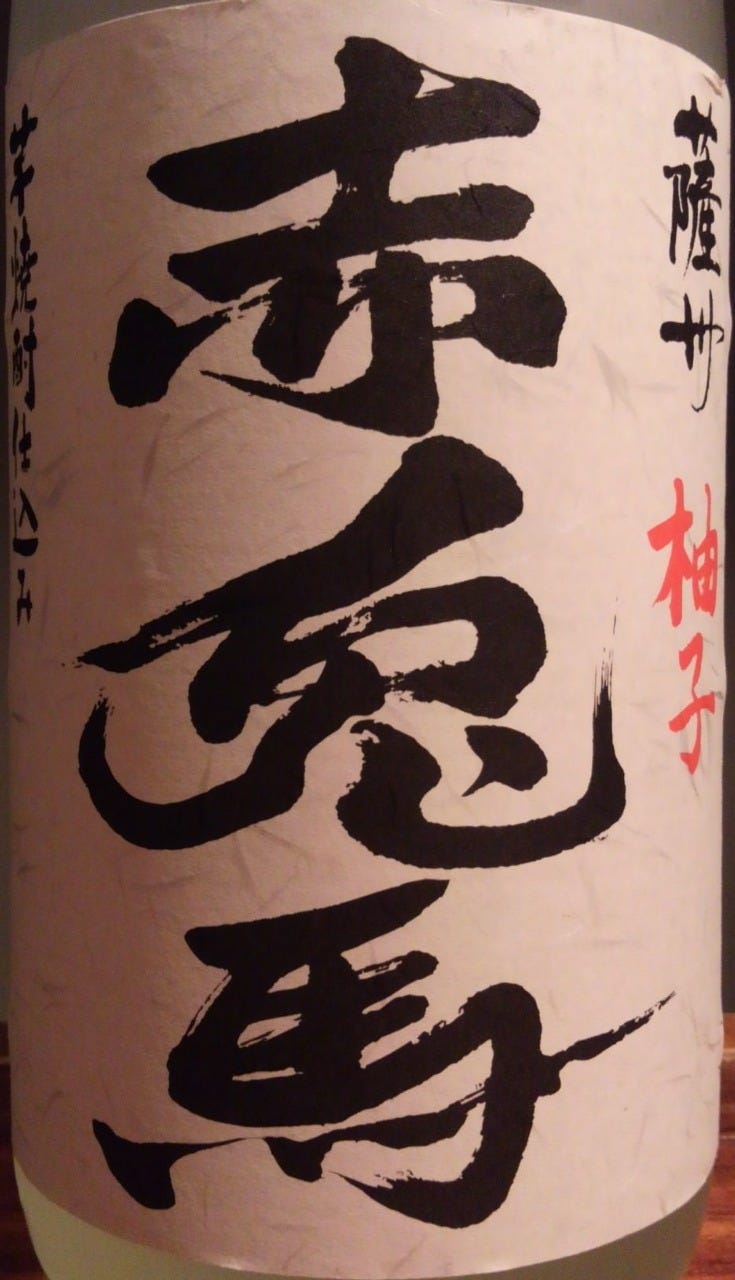 薩州
柚子
赤兎馬
芋焼酎仕込み